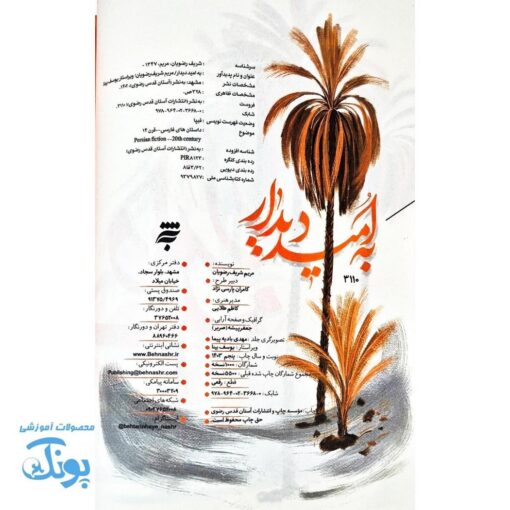 سرشناسه : شریف رضویان، مریم، ۱۳۴۷ -
عنوان و نام پدیدآور : به امید دیدار/ مریم شریف رضویان؛ ویراستار یوسف بینا
مشخصات نشر : مشهد: به‌نشر (آستان قدس رضوی)،
مشخصات ظاهری : ۳۲۸ص.
فروست : به‌نشر (انتشارات آستان قدس رضوی)؛ ۳۱۱۰
شابک : ۹۷۸-۹۶۴-۰۲-۳۶۶۸-۰
وضعیت فهرست نویسی : فیپا
موضوع : داستان های فارسی -- قرن ۱۴
Persian fiction -- 20th century
شناسه افزوده : به‌نشر (انتشارات آستان قدس رضوی)
رده بندی کنگره : PIR۸۱۲۳
رده بندی دیویی : ۸فا۳/۶۲
شماره کتابشناسی ملی : ۹۳۷۹۸۲۷
به امید دیدار
۳۱۱۰
نویسنده:
مریم شریف رضویان
دبیر طرح:
کامران پارسی نژاد
مدیر هنری:
کاظم طلایی
گرافیک و صفحه آرایی:
جعفر پیشه (صریر)
تصویرگری جلد: مهدی بادیه پیما
ویراستار: یوسف بینا
نوبت و سال چاپ: پنجم ۱۴۰۳
شمارگان: ۱۰۰۰ نسخه
مجموع شمارگان چاپ شده قبلی: ۵۵۰۰ نسخه
قطع: رقعی
شابک: ۹۷۸-۹۶۴-۰۲-۳۶۶۸-۰
چاپ: مؤسسه چاپ و انتشارات آستان قدس رضوی
حق چاپ محفوظ است.
به نشر
دفتر مرکزی:
مشهد، بلوار سجاد،
خیابان میلاد
صندوق پستی:
۹۱۳۷۵/۴۹۶۹
تلفن و دورنگار:
۳۷۶۵۲۰۰۸
دفتر تهران و دورنگار:
۸۸۹۶۰۴۶۶
نشانی اینترنتی:
www.Behnashr.ir
پست الکترونیکی:
Publishing@behnashr.com
سامانه پیامکی:
۳۰۰۰۳۲۰۹
شبکه‌های اجتماعی:
اینستاگرام:
@behtarinhaye_nashr
محصولات آموزشی
پونک